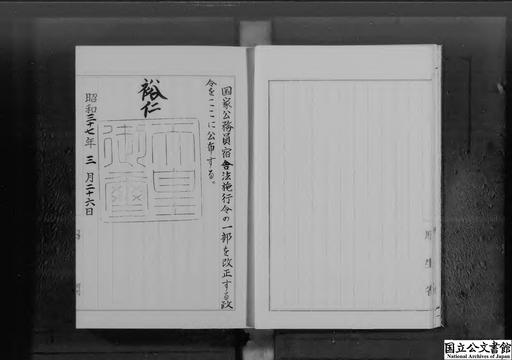 国家公務員宿舎法施行令の一部を改正する政
令をここに公布する。
裕仁
天皇
御璽
昭和三十七年三月二十六日
国立公文書館
National Archives of Japan